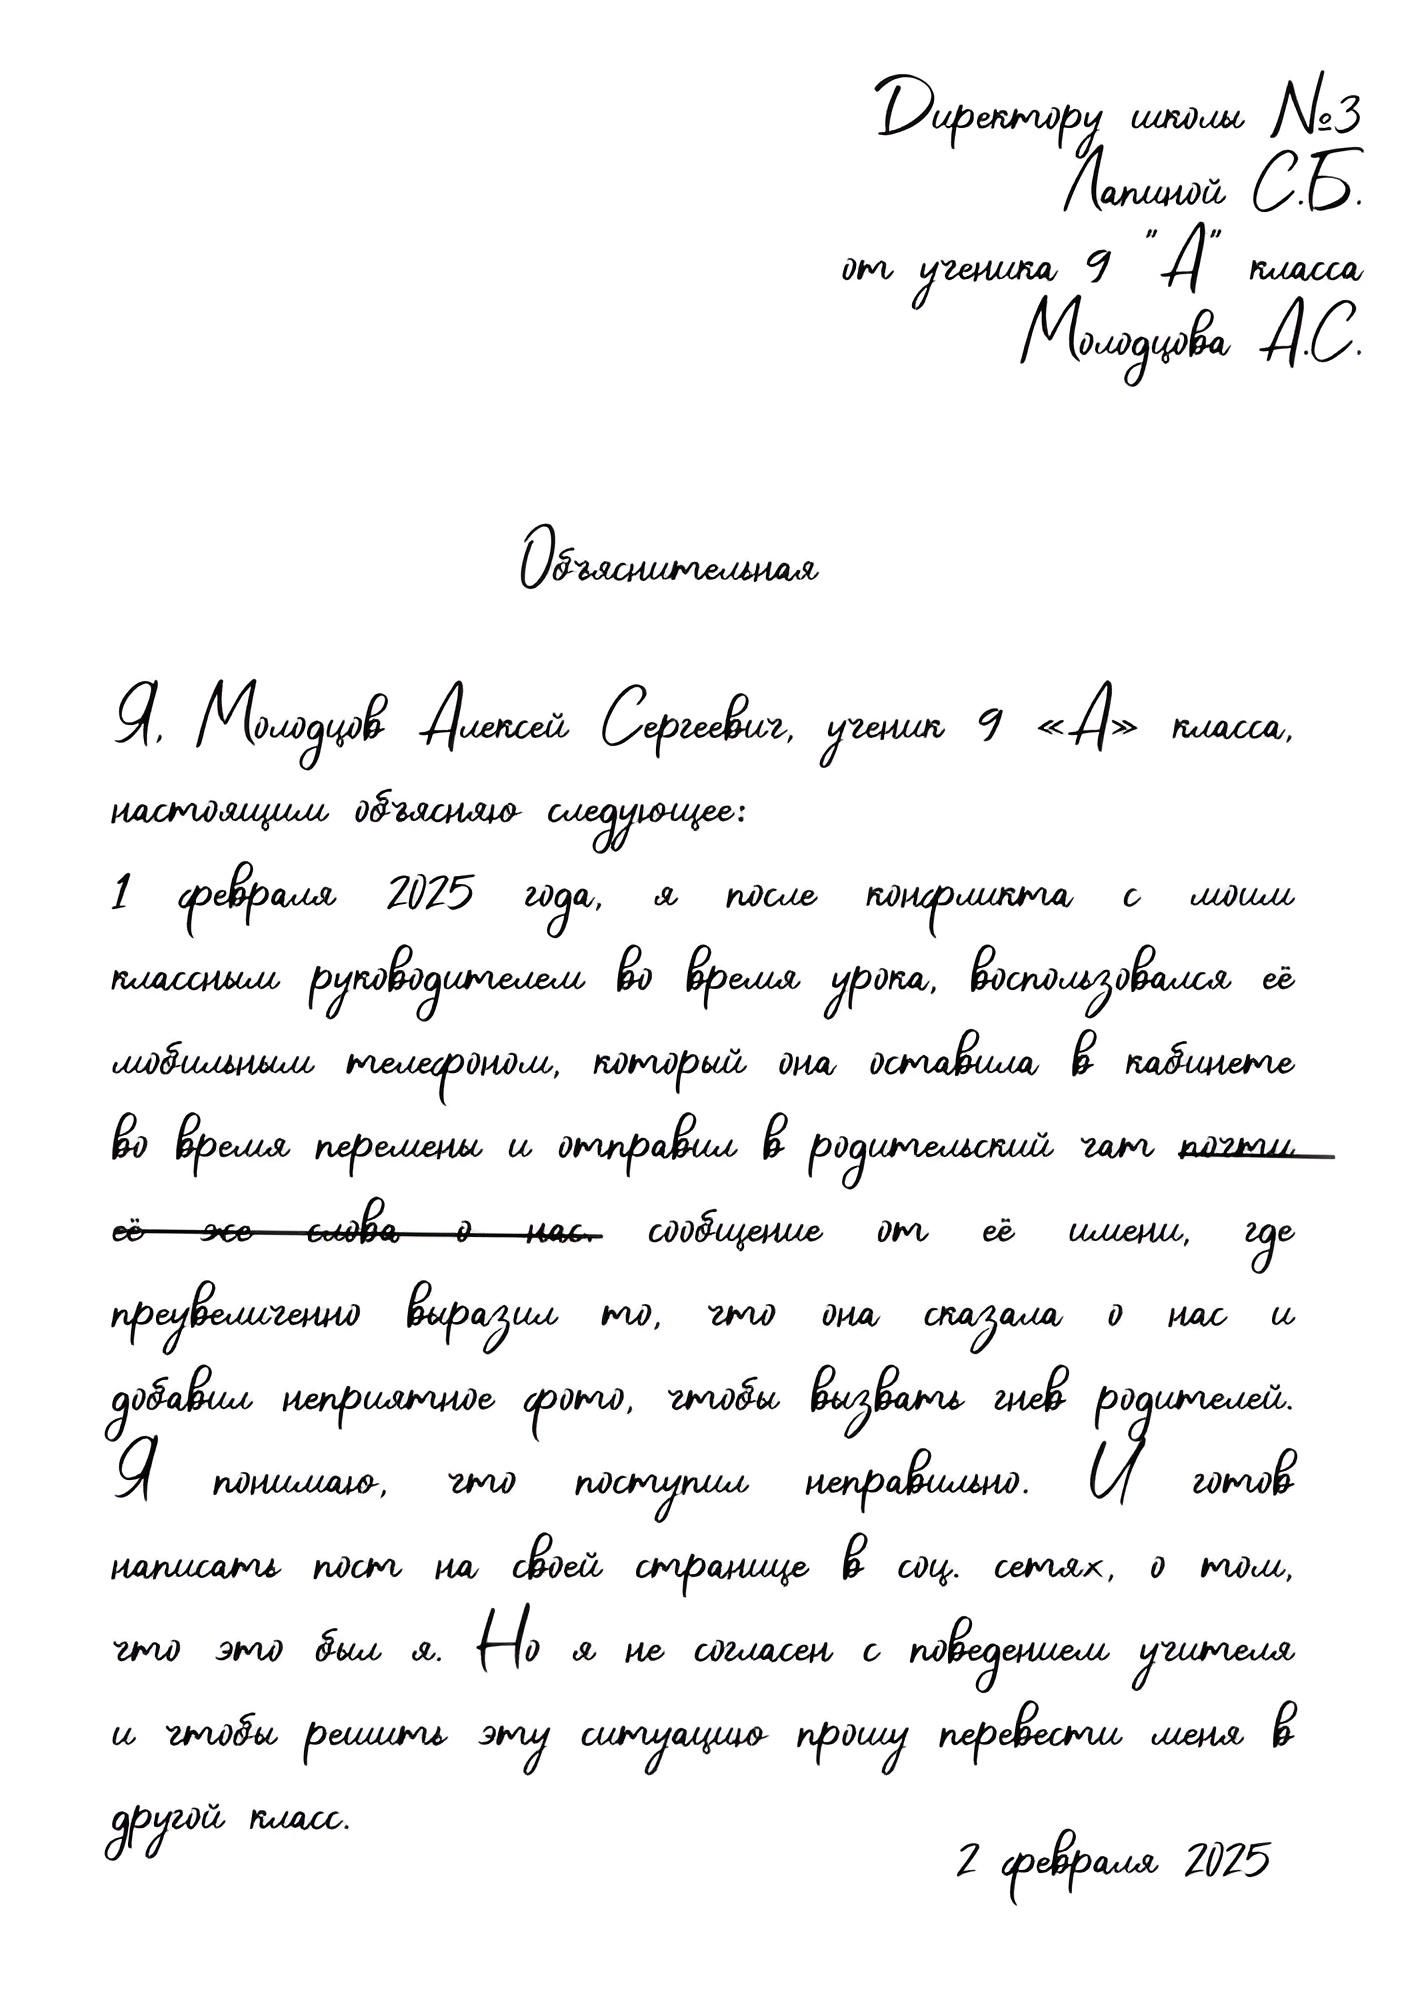 Директору школы №3
Лапиной С.Б.
от ученика 9 "А" класса
Молодцова А.С.
Объяснительная
Я, Молодцов Алексей Сергеевич, ученик 9 «А» класса,
настоящим объясняю следующее:
1 февраля 2025 года, я после конфликта с моим
классным руководителем во время урока, воспользовался её
мобильным телефоном, который она оставила в кабинете
во время перемены и отправил в родительский чат почти
её же слова о нас. сообщение от её имени, где
преувеличенно выразил то, что она сказала о нас и
добавил неприятное фото, чтобы вызвать гнев родителей.
Я понимаю, что поступил неправильно. И готов
написать пост на своей странице в соц. сетях, о том,
что это был я. Но я не согласен с поведением учителя
и чтобы решить эту ситуацию прошу перевести меня в
другой класс.
2 февраля 2025